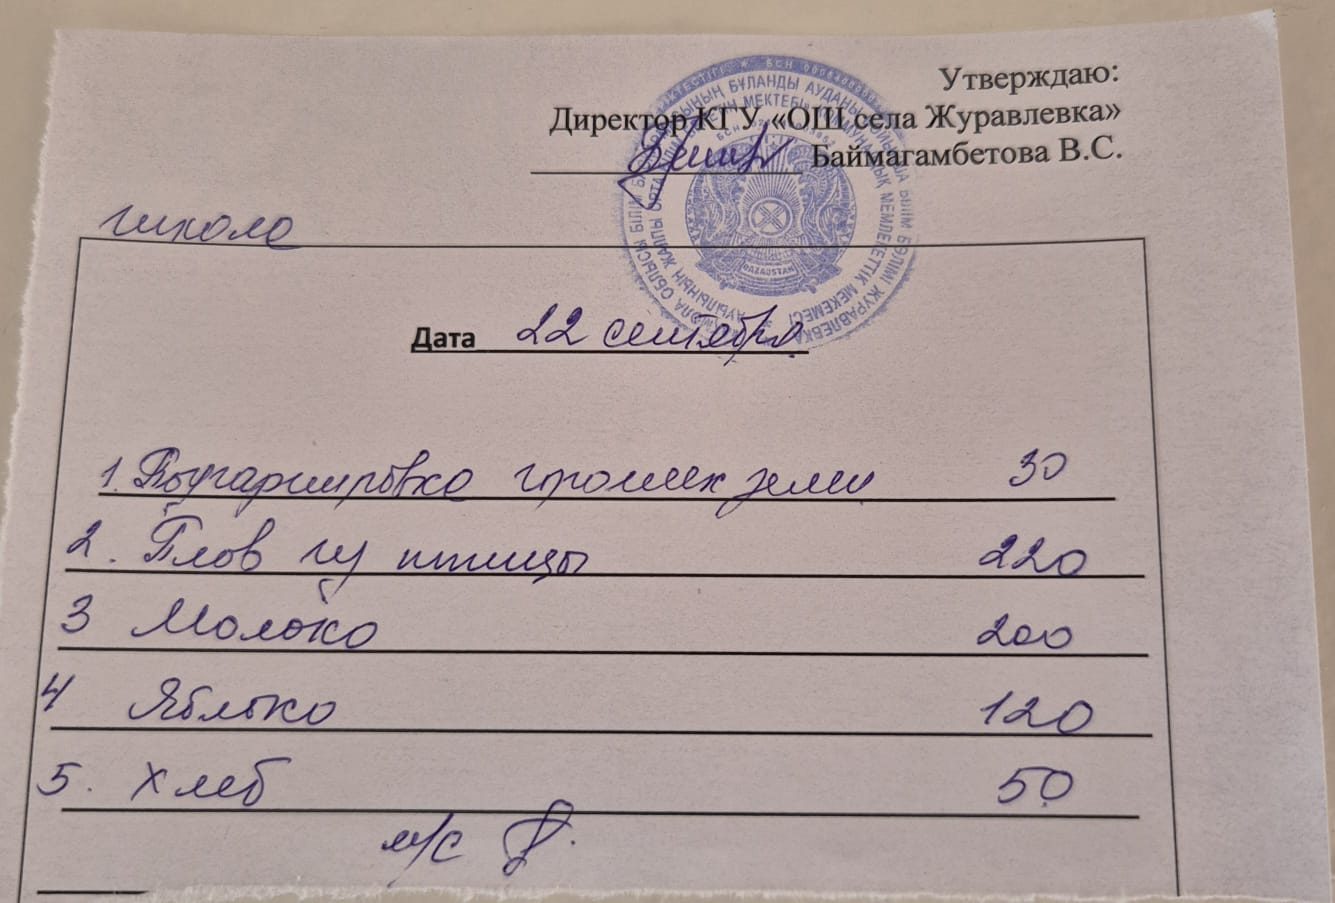 Утверждаю:
Директор КГУ «ОШ села Журавлевка»
Баймагамбетова В.С.
школа
Дата 22 сентября
1. горошек зелен 30
2. Плов из птицы 220
3 Молоко 200
4 Яблоко 120
5. Хлеб 50
м/с
QAZAQSTAN